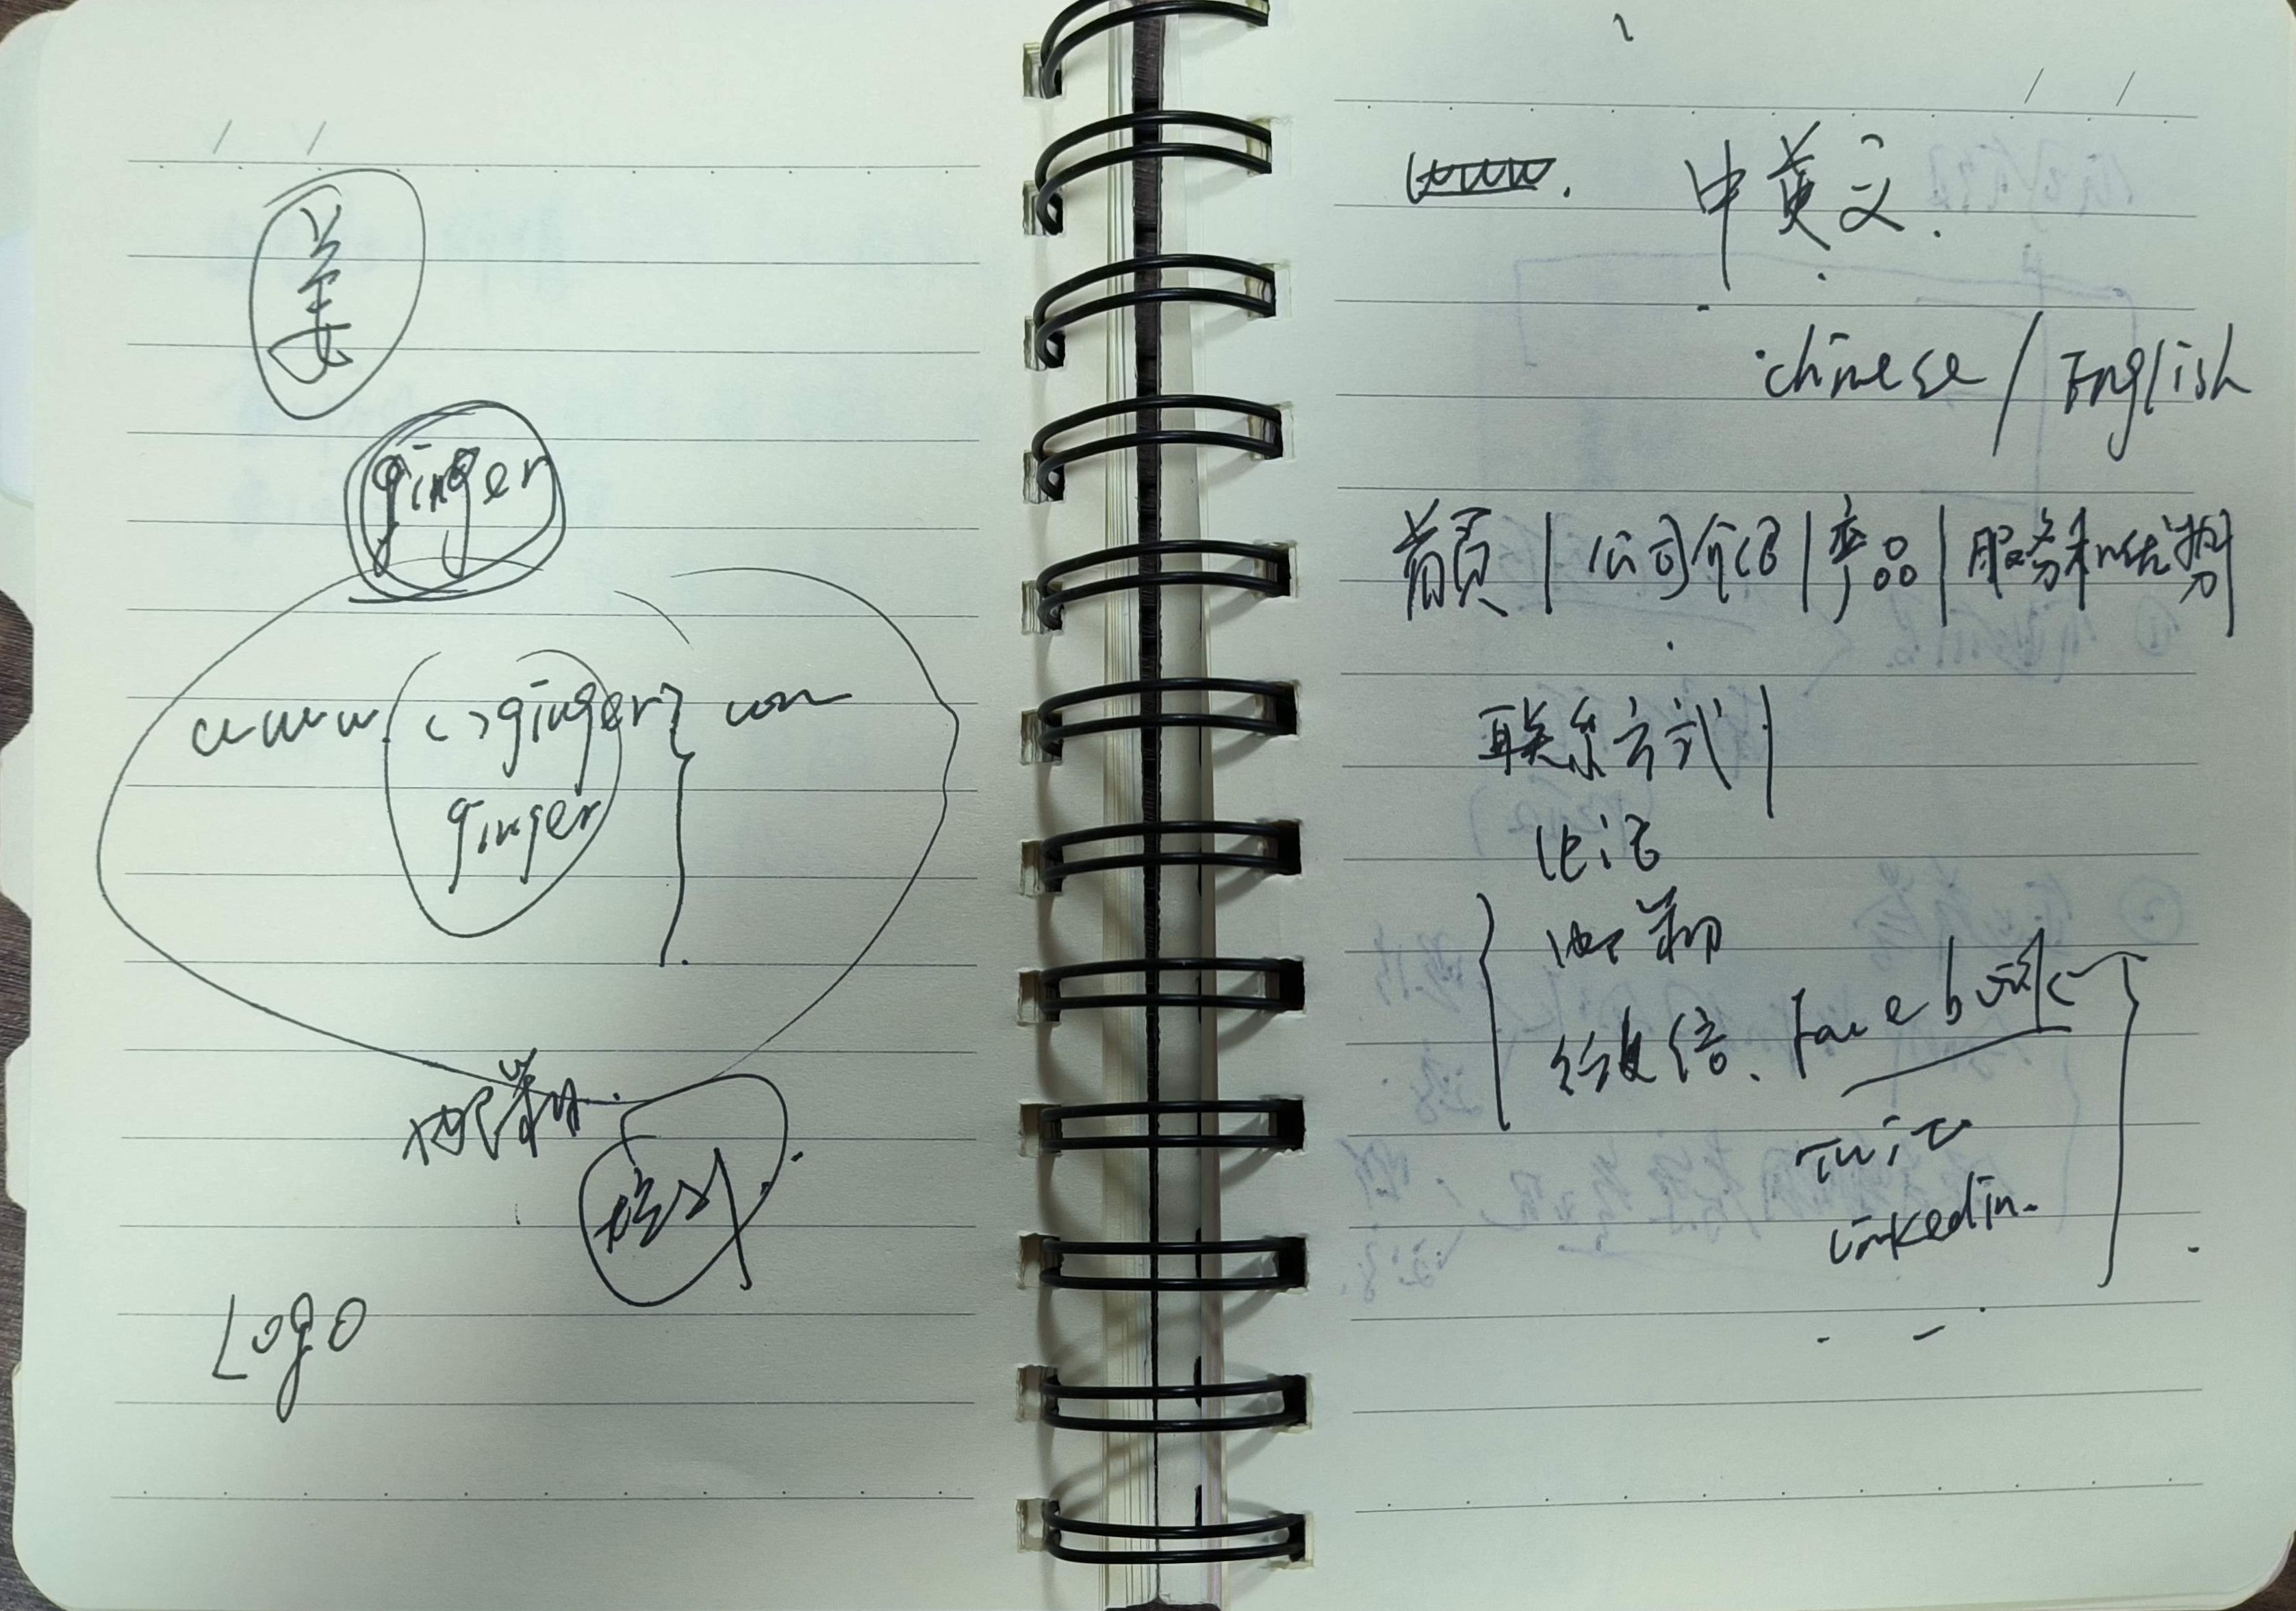 姜
ginger
www ( ) ginger } com
ginger
Logo
www. 中英文.
chinese / English
首页 | 公司介绍 | 产品 | 服务和优势 |
联系方式 |
电话
邮箱
微信、Facebook
Twit
Linkedin.